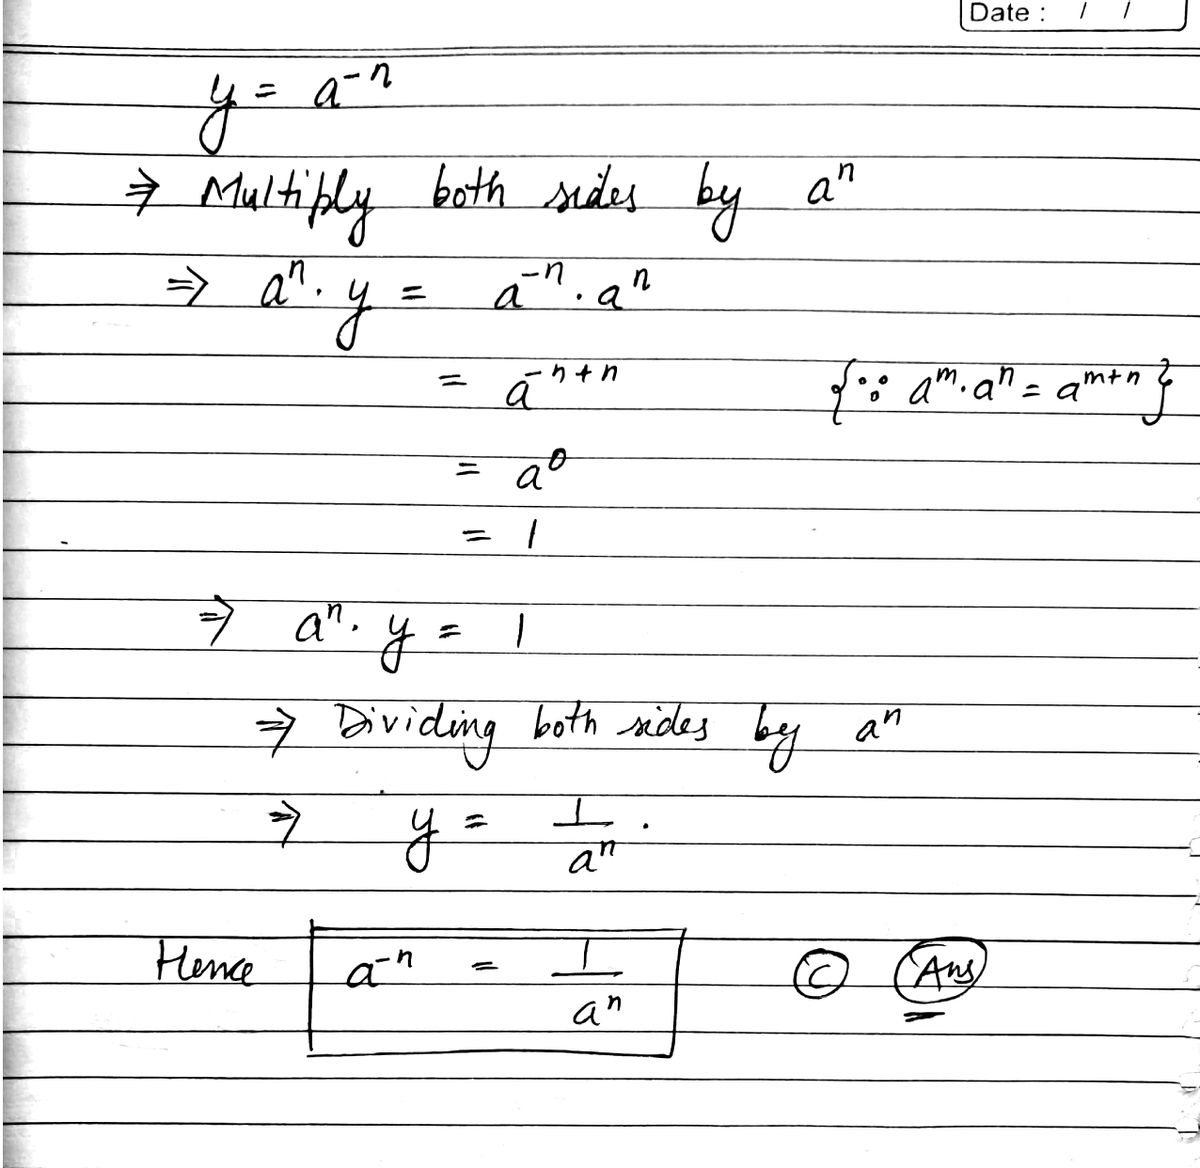 Date : / /
y = a⁻ⁿ
⇒ Multiply both sides by aⁿ
⇒ aⁿ. y = a⁻ⁿ. aⁿ
= a⁻ⁿ⁺ⁿ {∵ aᵐ. aⁿ = aᵐ⁺ⁿ}
= a⁰
= 1
⇒ aⁿ. y = 1
⇒ Dividing both sides by aⁿ
⇒ y = 1/aⁿ .
Hence a⁻ⁿ = 1/aⁿ Ⓒ Ans